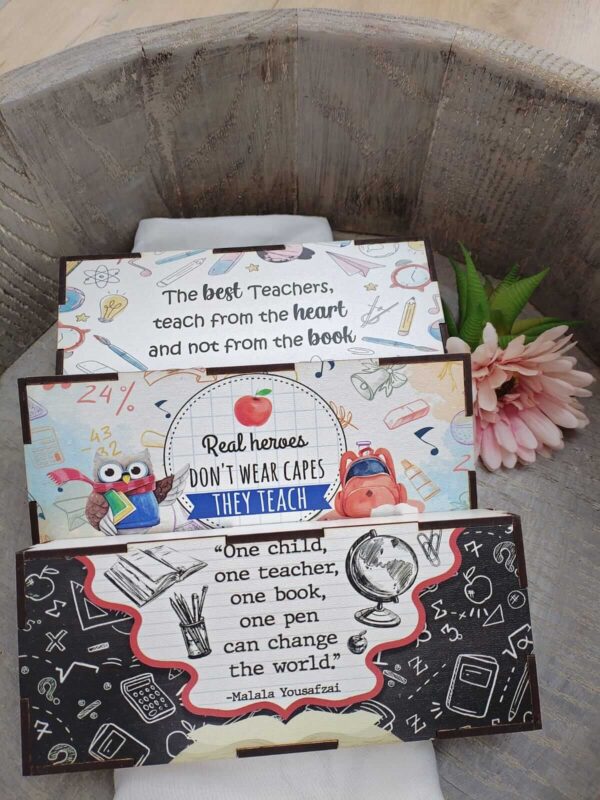 The best Teachers,
teach from the heart
and not from the book
24%
43
32
Real heroes
DON'T WEAR CAPES
THEY TEACH
"One child,
one teacher,
one book,
one pen
can change
the world."
-Malala Yousafzai